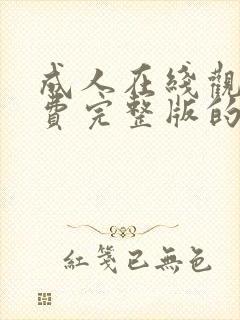 成人在綫觀
費完整版的
紅箋已無色